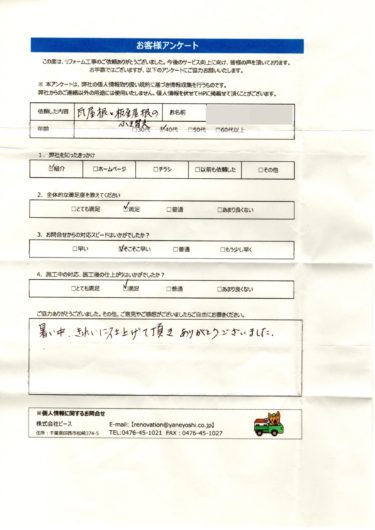 お客様アンケート
この度は、リフォーム工事のご依頼ありがとうございました。今後のサービス向上に向け、皆様の声を頂いております。
お手数ではございますが、以下のアンケートにご協力お願いいたします。
※ 本アンケートは、弊社の個人情報取り扱い規約に基づき情報収集を行うものです。
弊社からのご連絡以外の用途には使用いたしません。個人情報を伏せてHPに掲載させて頂くことがございます。
依頼した内容 瓦屋根・板金屋根の お名前
年齢 □30代 ☑40代 □50代 □60代以上
1. 弊社を知ったきっかけ
☑紹介 □ホームページ □チラシ □以前も依頼した □その他
2. 全体的な満足度を教えてください
□とても満足 ☑満足 □普通 □あまり良くない
3. お問合せからの対応スピードはいかがでしたか?
□早い ☑そこそこ早い □普通 □もう少し早く
4. 施工中の対応、施工後の仕上がりはいかがでしたか?
□とても満足 ☑満足 □普通 □あまり良くない
ご協力ありがとうございました。その他、ご意見やご感想がございましたらご自由にお書きください。
暑い中、きれいに仕上げて頂き ありがとうございました。
※個人情報に関するお問合せ
株式会社ピース E-mail:【renovation@yaneyoshi.co.jp】
住所:千葉県印西市松崎374-5 TEL:0476-45-1021 FAX:0476-45-1027